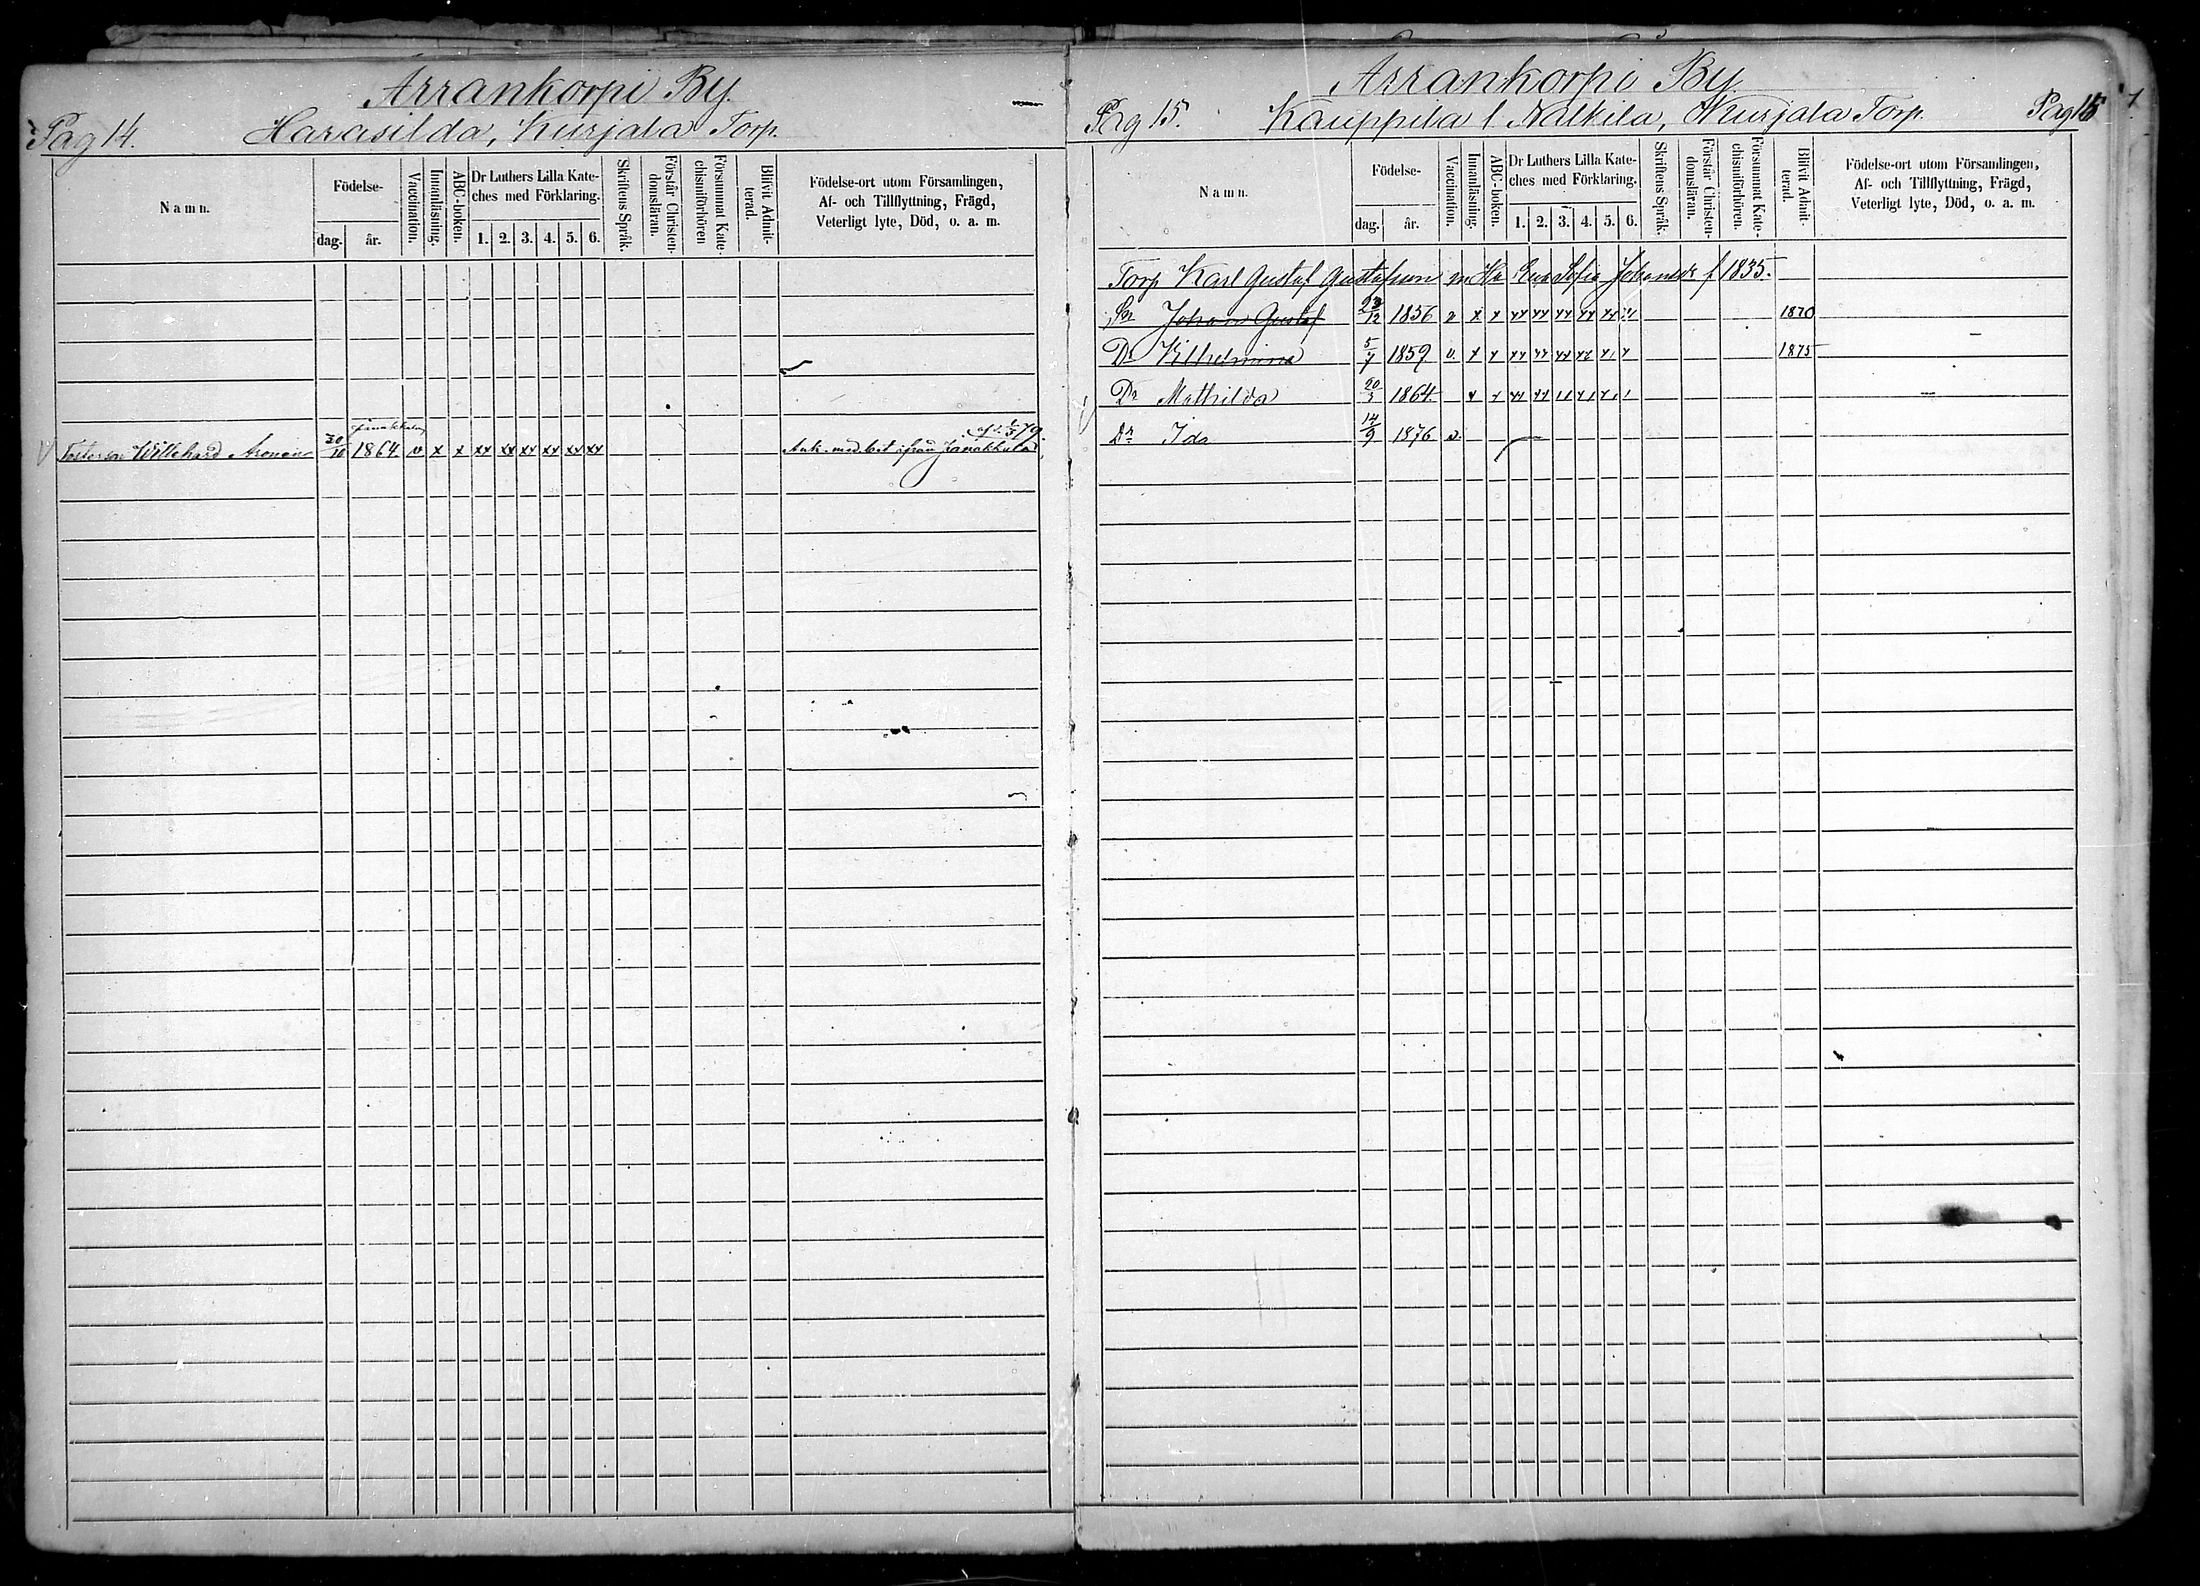 Arrankorpi By.
Pag 14. Harasilda, Kurjala Torp.
Namn. Födelse- dag. år. Vaccination. Innanläsning. ABC-boken. Dr Luthers Lilla Kateches med Förklaring. 1. 2. 3. 4. 5. 6. Skriftens Språk. Förstår Christendomsläran. Försummat Katechismiförhören Blifvit Admitterad. Födelse-ort utom Församlingen, Af- och Tillflyttning, Frägd, Veterligt lyte, Död, o. a. m.
Janakkala
Fosterson Willehard Aronen 30/10 1864 v x x xx xx xx xx xx xx Ank. med bet ifrån Janakkala
Arrankorpi By
Pag 15. Kauppila l Nalkila, Kurjala Torp. Pag 15
Namn. Födelse- dag. år. Vaccination. Innanläsning. ABC-boken. Dr Luthers Lilla Kateches med Förklaring. 1. 2. 3. 4. 5. 6. Skriftens Språk. Förstår Christendomsläran. Försummat Katechismiförhören. Blifvit Admitterad. Födelse-ort utom Församlingen, Af- och Tillflyttning, Frägd, Veterligt lyte, Död, o. a. m.
Torp Karl Gustaf Gustafsson m Hu Eva Sofia Johansdr f 1835.
Sn Johan Gustaf 1856 v x x xx xx xx xx xx 1870
Dr Vilhelmina 5/7 1859 v. x x xx xx xx xx x 1875
Dr Mathilda 20/3 1864 x x xx xx
Dr Ida 14/9 1876 v.